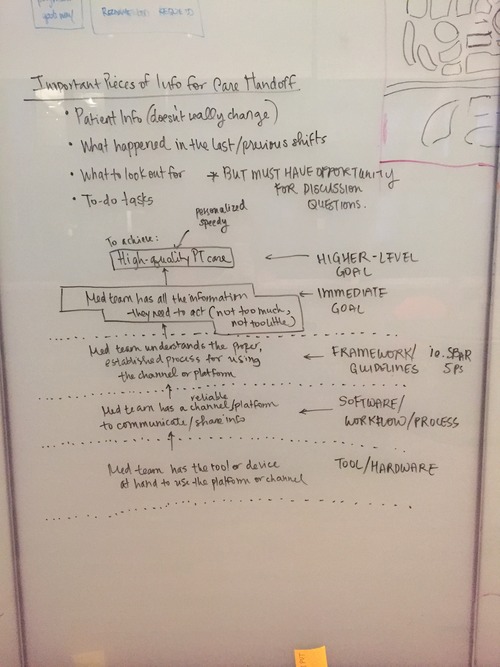 Important Pieces of Info for Care Handoff
• Patient Info (doesn't really change)
• What happened in the last/previous shifts
• What to look out for * BUT MUST HAVE OPPORTUNITY
FOR DISCUSSION
QUESTIONS.
• To-do tasks
personalized
speedy
To achieve:
High-quality PT care
HIGHER-LEVEL
GOAL
Med team has all the information
they need to act (not too much,
not too little)
IMMEDIATE
GOAL
Med team understands the proper,
established process for using
the channel or platform
FRAMEWORK/
GUIDELINES
SBAR
5Ps
reliable
Med team has a channel/platform
to communicate/share info
SOFTWARE/
WORKFLOW/PROCESS
Med team has the tool or device
at hand to use the platform or channel
TOOL/HARDWARE